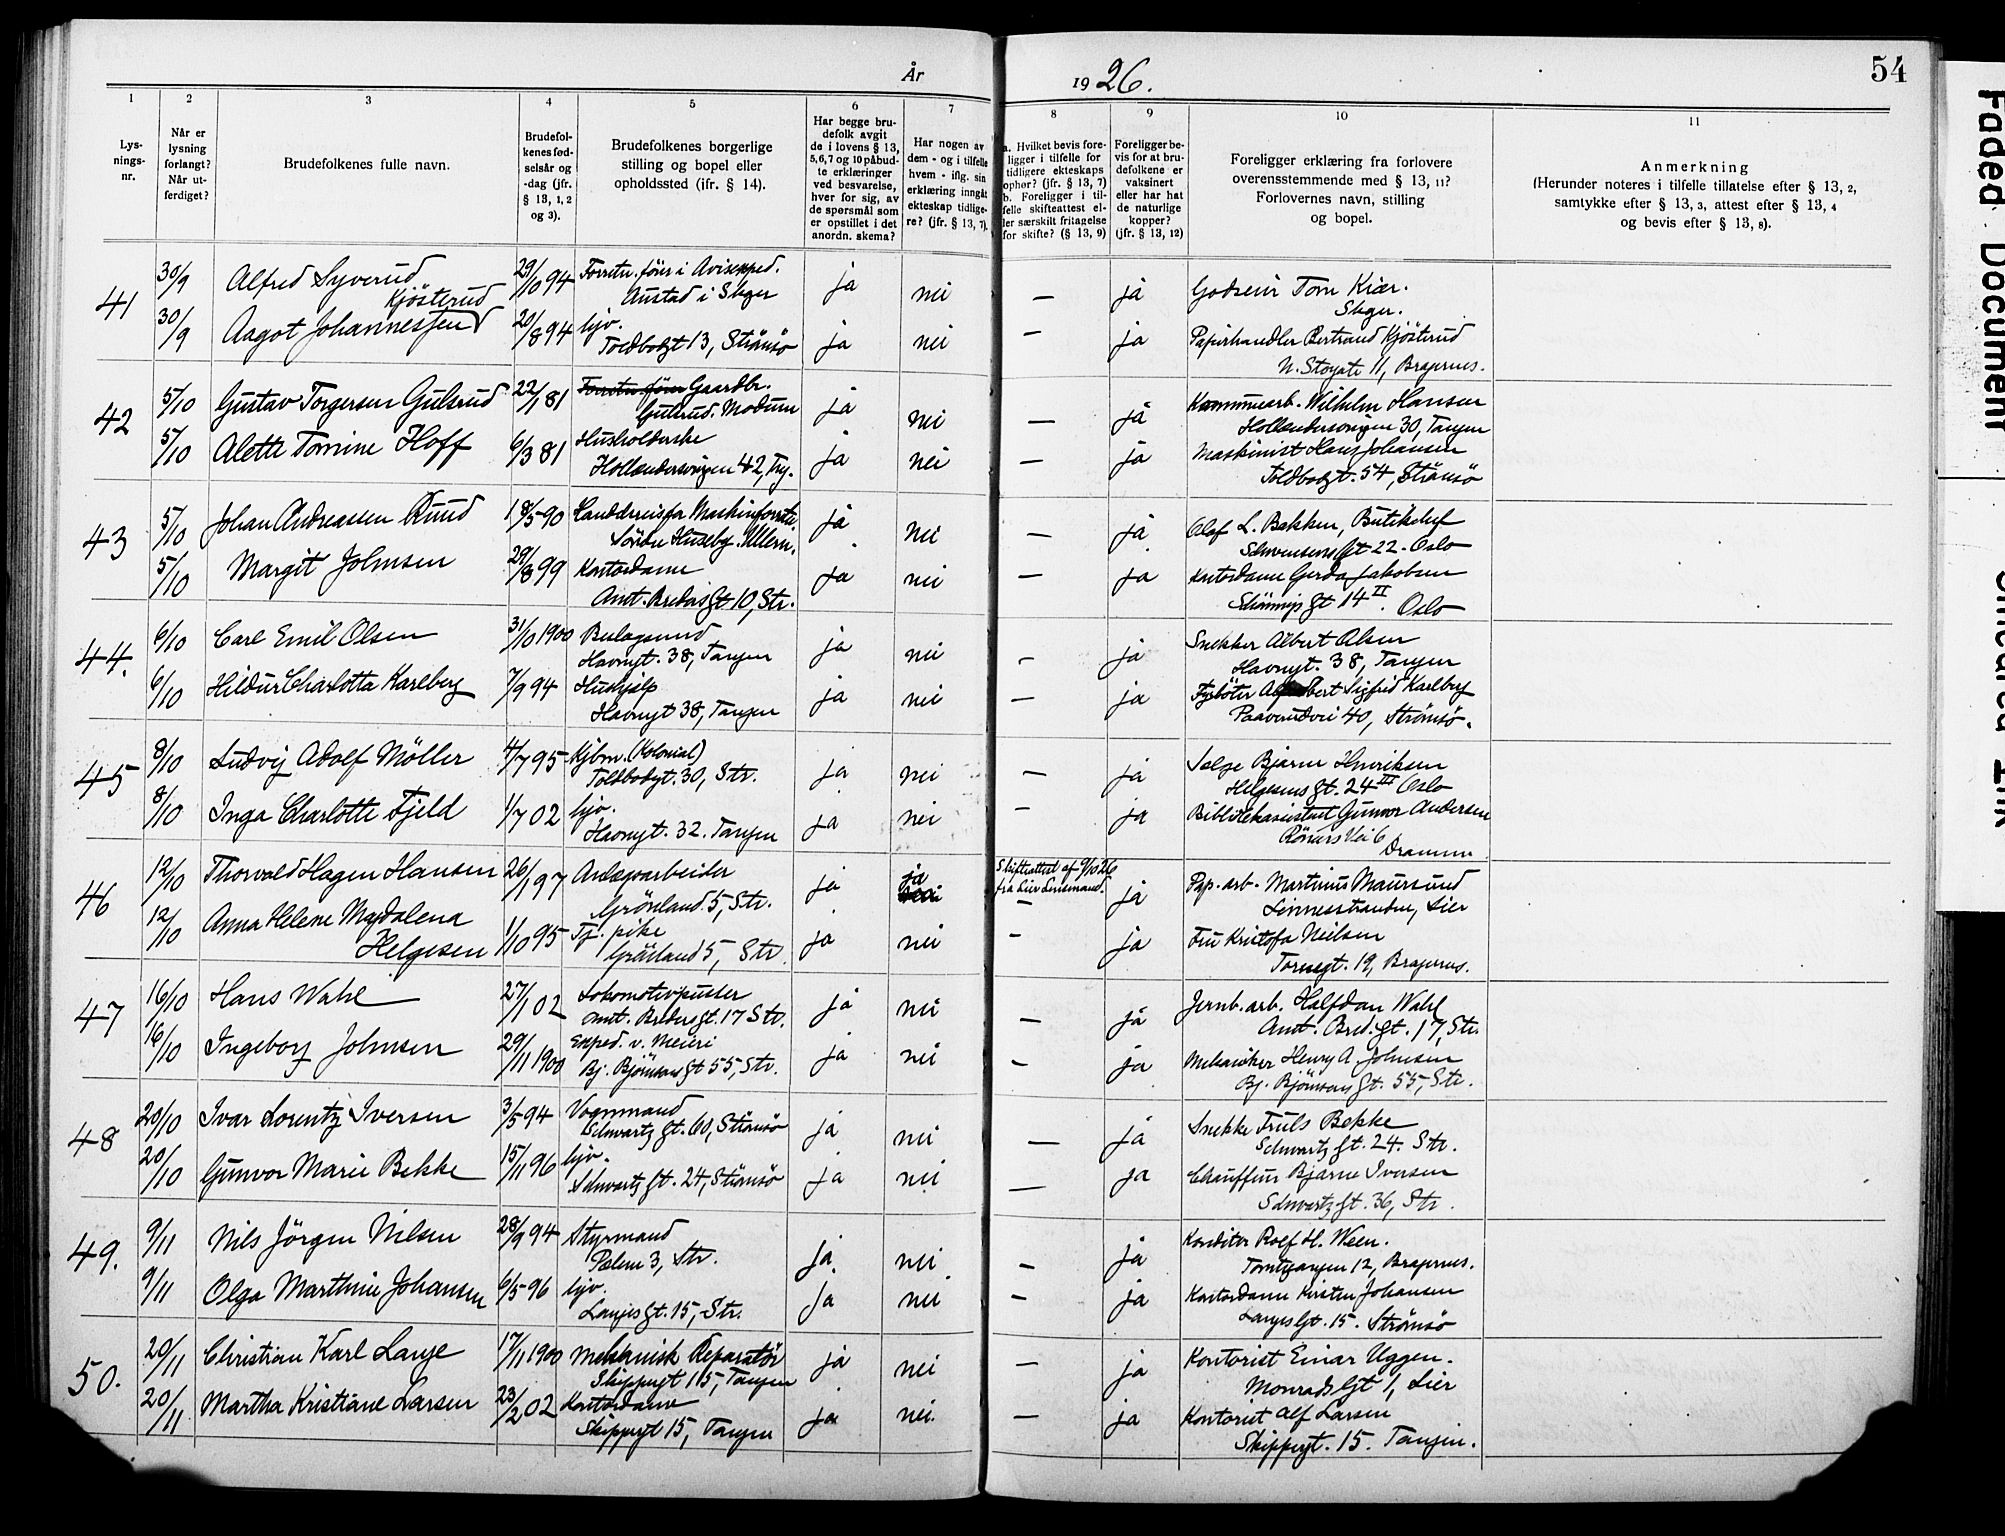 År 1926. 54
1 2 3 4 5 6 7 8 9 10 11
Lys-
nings-
nr.
Når er
lysning
forlangt?
Når ut-
ferdiget?
Brudefolkenes fulle navn.
Brudefol-
kenes fød-
selsår og
-dag (jfr.
§ 13, 1, 2
og 3).
Brudefolkenes borgerlige
stilling og bopel eller
opholdssted (ifr. § 14).
Har begge bru-
defolk avgit
de i lovens § 13,
5,6,7 og 10 påbud-
te erklæringer
ved besvarelse,
hver for sig, av
de spørsmål som
er opstillet i det
anordn. skema?
Har nogen av
dem - og i tilfelle
hvem - iflg. sin
erklæring inngåt
ekteskap tidlige-
re? (jfr. § 13, 7).
a. Hvilket bevis fore-
ligger i tilfelle for
tidligere ekteskaps
ophør? (jfr. § 13, 7)
b. Foreligger i til-
felle skifteattest el-
ler særskilt fritagelse
for skifte? (§ 13, 9)
Foreligger be-
vis for at bru-
defolkene er
vaksinert
eller har hat
de naturlige
kopper?
(jfr. § 13, 12)
Foreligger erklæring fra forlovere
overensstemmende med § 13, 11?
Forlovernes navn, stilling
og bopel.
Anmerkning
(Herunder noteres i tilfelle tillatelse efter § 13, 2,
samtykke efter § 13, 3, attest efter § 13, 4
og bevis efter § 13, 8).
41 30/9 Alfred Syverud 29/10 94 Forretn. fører i Avisexped. ja nei — ja Godseier Torn Kiær.
Kjösterud Austad i Skger Skger.
30/9 Aagot Johannessen 20/8 94 hjv. ja nei — ja Papirhandler Bertrand Kjösterud
Toldbodgt 13, Strömsö N. Storgate 11, Bragernes.
42 5/10 Gustav Torgersen Gulsrud 22/1 81 Forretn. fører Gaardbr. ja nei — ja Kommunearb. Wilhelm Hansen
Gulsrud. Modum Hollendersvingen 30, Tangen
5/10 Alette Tomine Hoff 6/3 81 Husholderske ja nei — ja Maskinist Hans Johansen
Hollendersvingen 42, Tng. Toldbodgt. 54, Strömsö
43 5/10 Johan Andreassen Ruud 18/5 90 ja nei — ja Olaf L. Bakken, Butikchef
Huseby. Ullern. Schwensens Gt 22 - Oslo
5/10 Margit Johnsen 29/8 99 Kontordame ja nei — ja Kontordame Gerda Jakobsen
Amt. Bredos Gt 10, Str. Gt 14 II. Oslo
44. 6/10 Carl Emil Olsen 31/10 1900 ja nei — ja Snekker Albert Olsen
Havnegt. 38, Tangen Havnegt. 38, Tangen
6/10 Hildur Charlotta Karlberg 7/9 94 Hushjelp ja nei — ja Fyrböter Sigfrid Karlberg
Havnegt 38, Tangen 40, Strömsö.
45 8/10 Ludvig Adolf Möller 4/7 95 Kjbm. (Kolonial) ja nei — ja Bjarne Henriksen
Toldbodgt. 30, Str. Helgesens Gt. 24 III Oslo
8/10 Inga Charlotte Fjeld 1/7 02 hjv. ja nei — ja Bibliotekassistent Gunvor Andersen
Havnegt. 32. Tangen Vei 6
Drammen
46 12/10 Thorvald Hagen Hansen 26/1 97 Anlægsarbeider ja ja nei Skifteattest af 9/10 26 ja Pap. arb. Martinus Maursund
Grönland. 5, Str. fra Lier Lensmand. — Linnesstranden, Lier
12/10 Anna Helene Magdalena 1/10 95 Tj. pike ja nei — ja Fru Kristofa Neilsen
Helgesen Grönland 5, Str. Tornegt. 19, Bragernes.
47 16/10 Hans Wahl 27/1 02 Lokomotivpusser ja nei — ja Jernb. arb. Halfdan Wahl
Amt. Bredos Gt. 17 Str. Amt. Bred. Gt. 17, Str.
16/10 Ingeborg Johnsen 29/11 1900 Exped. v. Meieri ja nei — ja Mekaniker Henry A. Johnsen
Bj. Björnsons Gt 55, Str. Bj. Björnsons Gt. 55, Str.
48 20/10 Ivar Lorentz Iversen 3/5 94 Vognmand ja nei — ja Truls Bekke
Schwartz Gt. 60, Strömsö Schwartz Gt. 24. Str.
20/10 Gunvor Marie Bekke 15/11 96 hjv. ja nei — ja Chauffeur Bjarne Iversen
Schwartz Gt. 24, Strömsö Schwartz Gt. 36, Str.
49. 9/11 Nils Jörgen Nilsen 28/9 94 Styrmand ja nei — ja Konditor Rolf H. Ween.
Pælen 3, Str. Tomtegangen 12, Bragernes.
9/11 Olga Marthine Johansen 6/5 96 hjv. ja nei — ja Kontordame Kirsten Johansen
Langes Gt. 15, Str. Langes Gt. 15. Strömsö
50. 20/11 Christian Karl Lange 17/11 1900 Mekanisk Reparatör ja nei — ja Kontorist Einar Uggen.
Skippergt 15, Tangen Monrads Gt 1, Lier
20/11 Martha Kristiane Larsen 23/2 02 Kontordame ja nei. — ja Kontorist Alf Larsen
Skippergt 15, Tangen Skippergt. 15. Tangen.
Faded Document
Smeared Ink